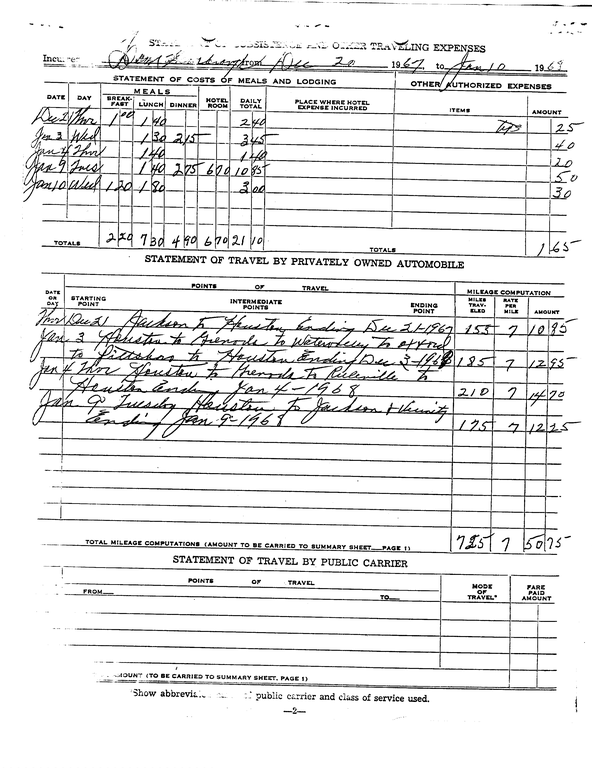 OF SUBSISTENCE AND OTHER TRAVELING EXPENSES
from Dec 20 1967 to Jan 10 1968
STATEMENT OF COSTS OF MEALS AND LODGING OTHER AUTHORIZED EXPENSES
DATE DAY MEALS BREAK-FAST LUNCH DINNER HOTEL ROOM DAILY TOTAL PLACE WHERE HOTEL EXPENSE INCURRED ITEMS AMOUNT
Dec 21 Thur 1 00 1 40 2 40 Tips 25
Jan 3 Wed 1 30 2 15 3 45 40
Jan 4 Thur 1 40 1 40 20
Jan 9 Tues 1 40 2 75 6 70 10 85 50
Jan 10 Wed 1 20 1 80 3 00 30
TOTALS 2 20 7 30 4 90 6 70 21 10 TOTALS 1 65
STATEMENT OF TRAVEL BY PRIVATELY OWNED AUTOMOBILE
DATE OR DAY POINTS OF TRAVEL MILEAGE COMPUTATION
STARTING POINT INTERMEDIATE POINTS ENDING POINT MILES TRAV-ELED RATE PER MILE AMOUNT
Thur Dec 21 Jackson to Houston Ending Dec 21-1967 155 7 10 85
Jan 3 Houston to Grenada to Water Valley to Oxford
to Pittsboro to Houston Ending Dec 3-1968 185 7 12 95
Jan 4 Thur Houston to Grenada to to
Houston Ending Jan 4-1968 210 7 14 70
Jan 9 Tuesday Houston to Jackson & Vicinity
Ending Jan 9-1968 175 7 12 25
TOTAL MILEAGE COMPUTATIONS (AMOUNT TO BE CARRIED TO SUMMARY SHEET—PAGE 1) 725 7 50 75
STATEMENT OF TRAVEL BY PUBLIC CARRIER
POINTS OF TRAVEL MODE OF TRAVEL* FARE PAID AMOUNT
FROM— TO—
AMOUNT (TO BE CARRIED TO SUMMARY SHEET, PAGE 1)
*Show public carrier and class of service used.
—2—